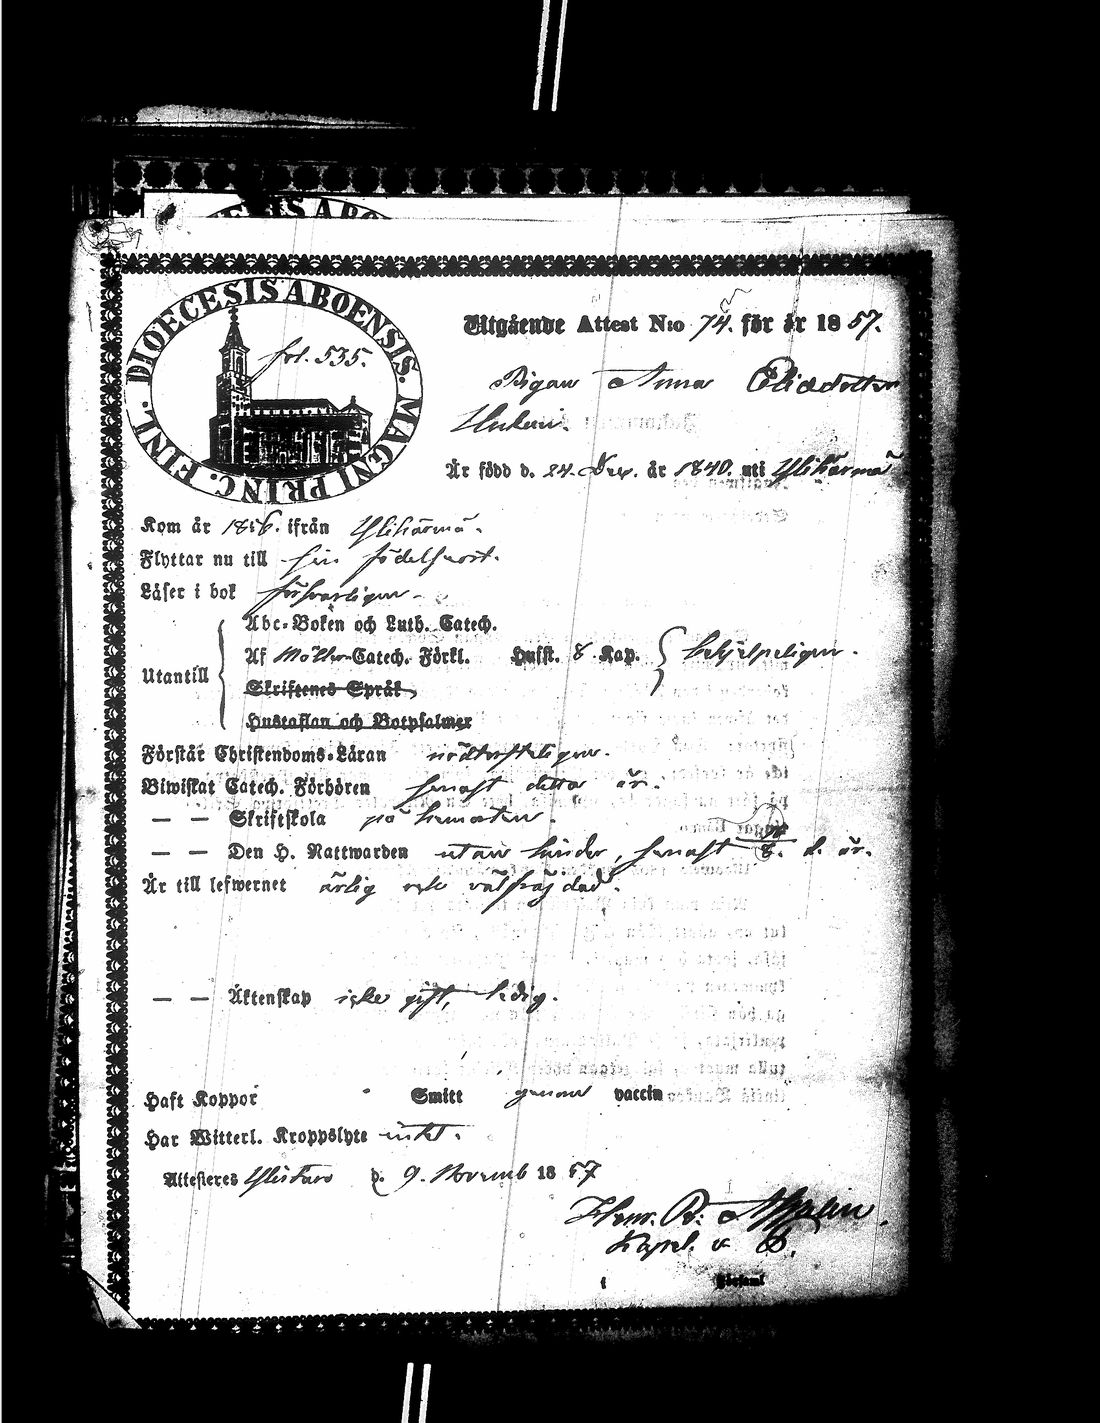 DIOECESIS ABOENSIS. MAGNI PRINC. FINL.
fol. 535.
Utgående Attest N:o 74. för år 1857.
Pigan Anna Eliædotter
Är född d. 24. år 1840. uti Ylihärmä
Kom år 1856. ifrån Ylihärmä.
Flyttar nu till sin födelseort.
Läser i bok försvarligen.
Abc-Boken och Luth. Catech.
Utantill
Af Möll. Catech. Förkl. Husst. 8. Kap. behjelpeligen.
Skriftenes Språk,
Hustaflan och Botpsalmer
Förstår Christendoms-Läran nödtorfteligen.
Biwistat Catech. Förhören senast detta år.
— — Skriftskola på hemorten.
— — Den H. Nattwarden utan hinder, senast d. år.
Är till lefwernet ärlig och välfräjdad.
— — Äktenskap icke gift, ledig.
Haft Koppor Smitt genom vaccin
Har Witterl. Kroppslyte intet.
Attesteres Ylistaro d. 9. Novemb 1857
Henr. R:
Kapel.
i Församl